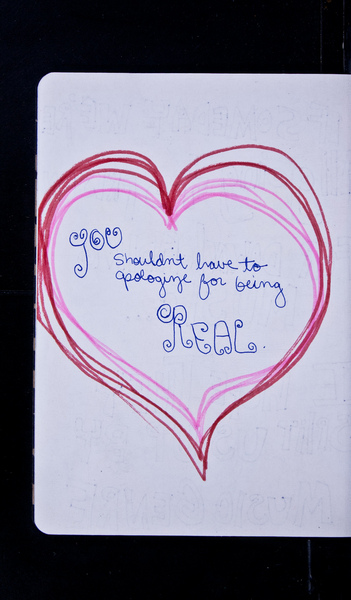 you
shouldn't have to
apologize for being
REAL.